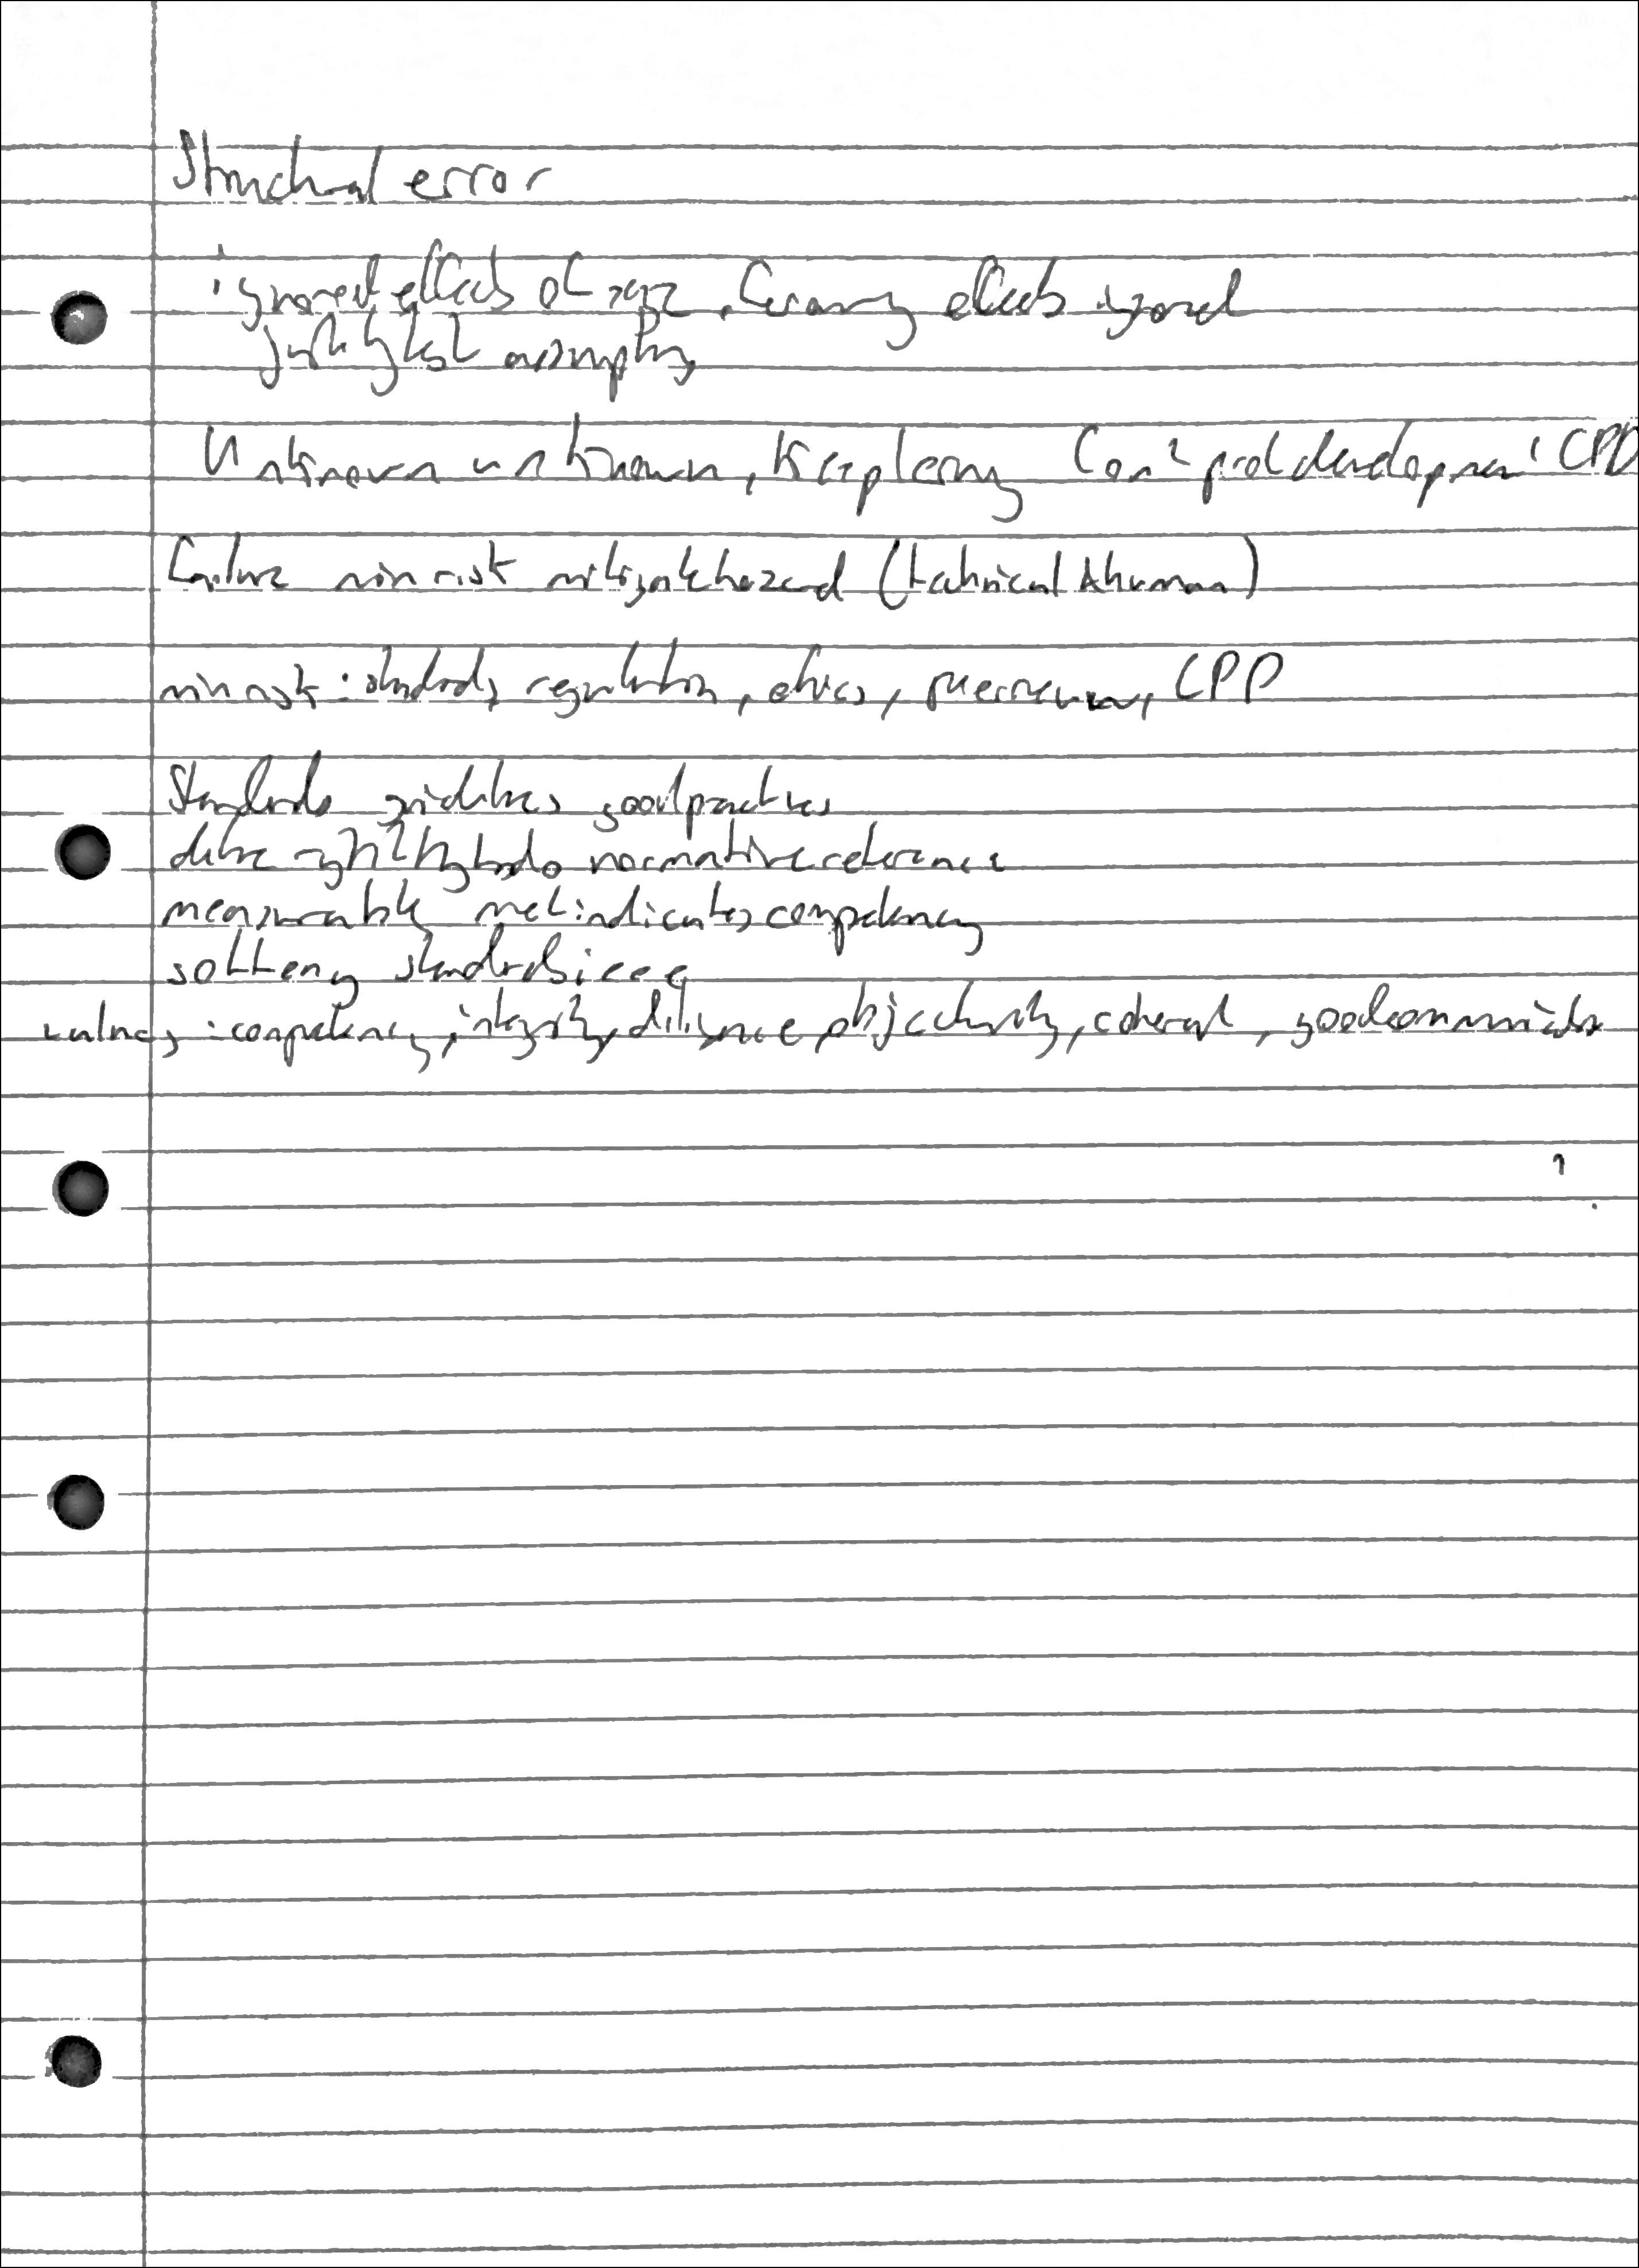 Structural error
ignored effects of size, Ceramy effects ignored
justify test assumptions
Unknown unknown, keep learning Con² prof development CPD
failure min risk mitigate hazard (technical & human)
min risk : standards, regulation, ethics, CPD
Standards guidelines good practices
define normative reference
measurable met indicates competency
software eng standards ieee
values : competency, integrity, diligence, objectivity, coherent, good communication